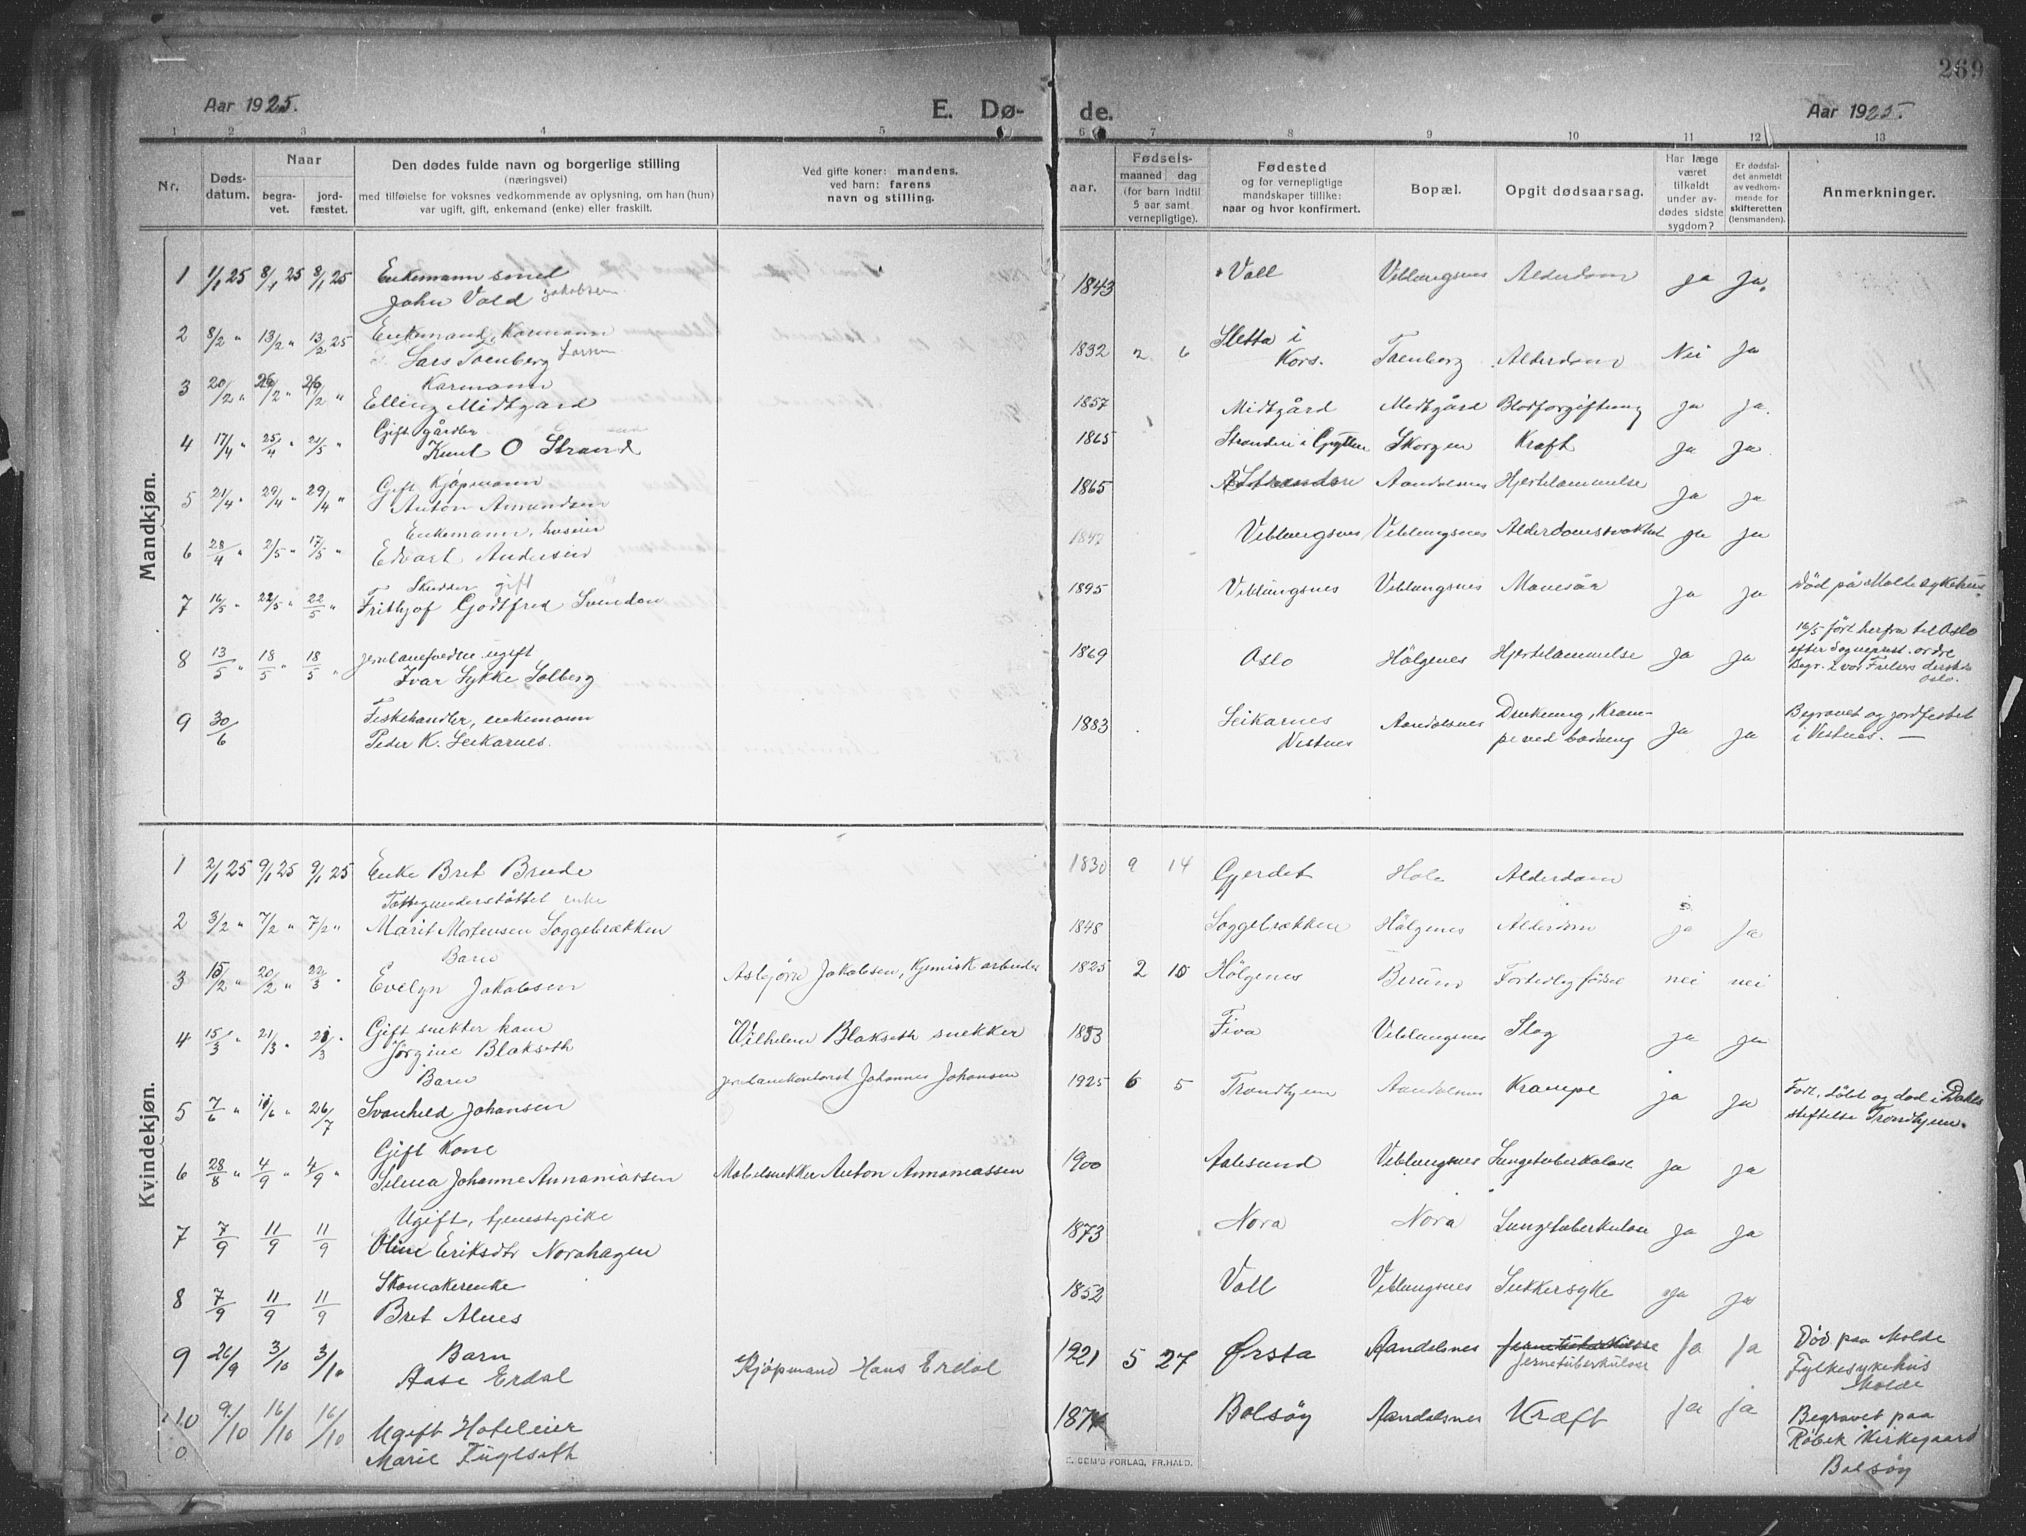 269
Aar 1925.
E. Dø-
de.
Aar 1925.
1 2 3 4 5 6 7 8 9 10 11 12 13
Nr.
Døds-
datum.
Naar
begra-
vet.
jord-
fæstet.
Den dødes fulde navn og borgerlige stilling
(næringsvei)
med tilføielse for voksnes vedkommende av oplysning, om han (hun)
var ugift, gift, enkemand (enke) eller fraskilt.
Ved gifte koner: mandens.
ved barn: farens
navn og stilling.
aar.
Fødsels-
maaned dag
(for barn indtil
5 aar samt
vernepligtige).
Fødested
og for vernepligtige
mandskaper tillike:
naar og hvor konfirmert.
Bopæl.
Opgit dødsaarsag.
Har læge
været
tilkaldt
under av-
dødes sidste
sygdom?
Er dødsfal-
det anmeldt
av vedkom-
mende for
skifteretten
(lensmanden).
Anmerkninger.
Mandkjøn.
1 1/1 25 8/1 25 8/1 25 Enkemann smed
John Vold Jakobsen 1843 Voll Veblungsnes Alderdom ja ja.
2 8/2 " 13/2 " 13/2 25 Enkemand, Kaarmann
Lars Soenborg Larsen 1832 2 6 Sletta i
Kors. Alderdom Nei ja
3 20/2 " 26/2 " 26/2 " Kaarmann
Elling Midtgard 1857 Midtgård Midtgård Blodforgiftning ja ja.
4 17/4 " 25/4 " 21/5 " Gift gårdbr
Knut O Strand 1865 Skorgen Kræft ja ja
5 21/4 " 29/4 " 29/4 " Gift Kjøpmann
Anton Amundsen 1865 Aandalsnes Hjertelammelse ja ja
6 28/4 " 2/5 " 17/5 " Enkemann, huseier
Edvart Andersen 1847 Veblungsnes Veblungsnes Alderdomssvakhet ja ja
7 16/5 " 22/5 " 22/5 " gift
Frithjof Godtfred Svendsen 1895 Veblungsnes Veblungsnes Mavesår ja ja Død på Molde sykehus.
8 13/5 " 18/5 " 18/5 " ugift
Ivar Lykke Solberg 1869 Oslo Hölgenes Hjertelammelse ja ja 16/5 ført herfra til Oslo
efter Sogneprest. ordre
Begr. i vor Frelsers
Oslo.
9 30/6 Fiskehandler, enkemann
Peder K. Leikarnes. 1883 Leikarnes
Vestnes Aandalsnes Drukning, Kram-
pe ved badning ja ja Begravet og jordfestet
i Vestnes. —
Kvindekjøn.
1 2/1 25 9/1 25 9/1 25 Enke Bret Brude 1830 9 14 Gjerdet Hole Alderdom
2 3/2 " 7/2 " 7/2 " Fattigunderstøttet enke
Marit Mortensen Soggebrækken 1848 Soggebrækken Hölgenes Alderdom ja ja
3 15/2 " 20/2 " 22/3 " Barn
Evelyn Jakobsen Asbjørn Jakobsen, Kjemisk arbeider 1825 2 10 Hölgenes Bærum Fortidlig fødsel nei nei
4 15/3 " 21/3 " 21/3 " Gift snekker kone
Jörgine Blakseth Vilhelm Blakseth snekker 1853 Fiva Veblungsnes Slag ja ja
5 7/6 " 10/6 " 26/7 Barn
Svanhild Johansen jernbanekontorist Johannes Johansen 1925 6 5 Trondhjem Aandalsnes Krampe ja ja Født, døbt og død i Dahls
stiftelse Trondhjem.
6 28/8 " 4/9 " 4/9 " Gift Kone
Selma Johanne Annaniassen Møbelsnekker Anton Annaniassen 1900 Aalesund Veblungsnes Lungetuberkulose ja ja
7 7/9 11/9 11/9 Ugift, tjenestepike
Oline Eriksdtr Norahagen 1873 Nora Nora Lungetuberkulose ja ja
8 7/9 11/9 11/9 Skomakerenke
Bret Alnes 1852 Voll Veblungsnes Sukkersyke ja ja
9 26/9 3/10 3/10 Barn
Aase Erdal Kjøpmand Hans Erdal 1921 5 27 Ørsta Aandalsnes Jernetuberkulose
Jernetuberkulose ja ja Død paa Molde
Fylkesykehus
Molde
10 9/10 16/10 16/10 Ugift Hoteleier
Marie Fuglseth 1874 Bolsøy Aandalsnes Kræft ja ja Begravet paa
Røbek Kirkegaard
Bolsøy
E. SEM'S FORLAG, FR.HALD.